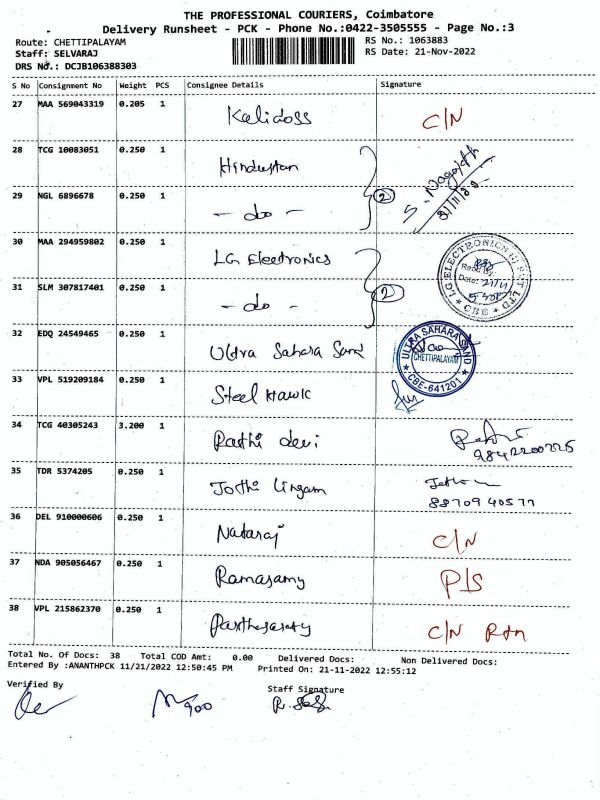 THE PROFESSIONAL COURIERS, Coimbatore
Delivery Runsheet - PCK - Phone No.:0422-3505555 - Page No.:3
Route: CHETTIPALAYAM RS No.: 1063883
Staff: SELVARAJ RS Date: 21-Nov-2022
DRS No.: DCJB106388303
S No Consignment No Weight PCS Consignee Details Signature
27 MAA 569043319 0.205 1 Kalidoss C/N
28 TCG 10083051 0.250 1 Hindustan
29 NGL 6896678 0.250 1 - do - 2 S. Nagajoth
30 MAA 294959802 0.250 1 LG Electronics LG ELECTRONICS
31 SLM 307817401 0.250 1 - do - 2 Date: 21/11 CBE
32 EDQ 24549465 0.250 1 Ultra Sahara Sand ULTRA SAHARA SAND CHETTIPALAYAM CBE-641201
33 VPL 519209184 0.250 1 Steel Hawk
34 TCG 40305243 3.200 1 Rathi devi 9842200725
35 TDR 5374205 0.250 1 Jothi Lingam 88709 40577
36 DEL 910000606 0.250 1 Nataraj C/N
37 NDA 905056467 0.250 1 Ramasamy P/S
38 VPL 215862370 0.250 1 Parthasarathy C/N Rtn
Total No. Of Docs: 38 Total COD Amt: 0.00 Delivered Docs: Non Delivered Docs:
Entered By :ANANTHPCK 11/21/2022 12:50:45 PM Printed On: 21-11-2022 12:55:12
Verified By Staff Signature
900